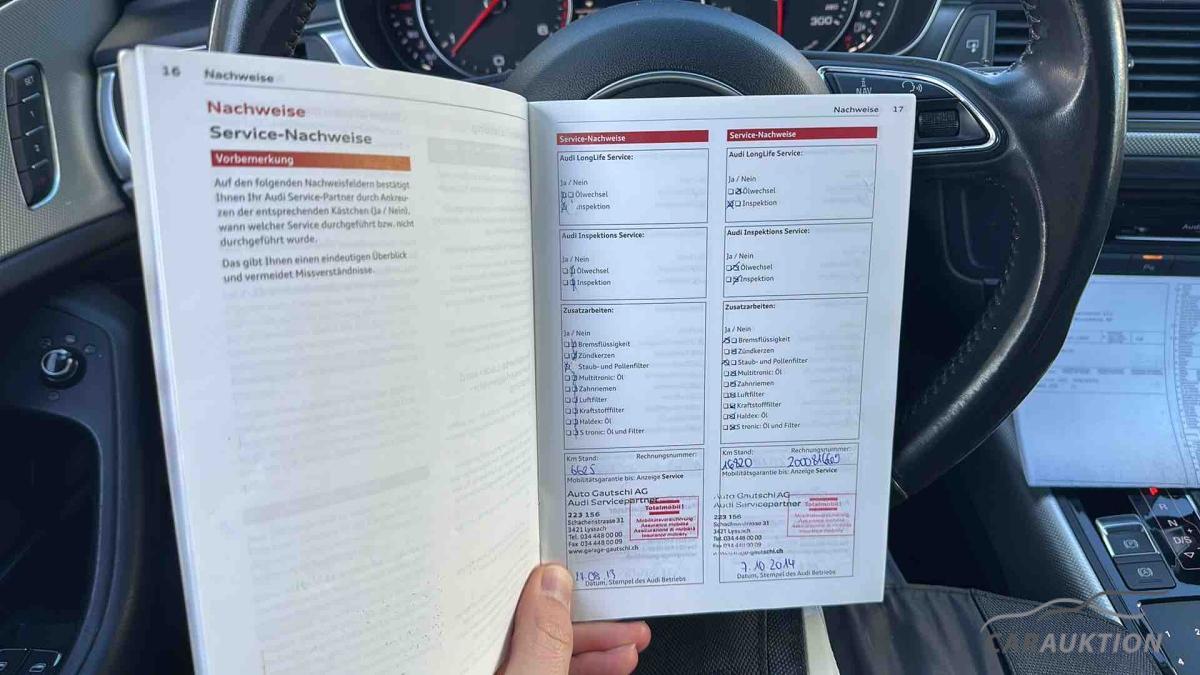 16 Nachweise
Nachweise
Service-Nachweise
Vorbemerkung
Auf den folgenden Nachweisfeldern bestätigt
Ihnen Ihr Audi Service-Partner durch Ankreu-
zen der entsprechenden Kästchen (Ja / Nein),
wann welcher Service durchgeführt bzw. nicht
durchgeführt wurde.
Das gibt Ihnen einen eindeutigen Überblick
und vermeidet Missverständnisse.
Nachweise 17
Service-Nachweise
Audi LongLife Service:
Ja / Nein
Ölwechsel
Inspektion
Audi Inspektions Service:
Ja / Nein
Ölwechsel
Inspektion
Zusatzarbeiten:
Ja / Nein
Bremsflüssigkeit
Zündkerzen
Staub- und Pollenfilter
Multitronic: Öl
Zahnriemen
Luftfilter
Kraftstofffilter
Haldex: Öl
S tronic: Öl und Filter
Km Stand: Rechnungsnummer:
6625
Mobilitätsgarantie bis: Anzeige Service
Auto Gautschi AG
Audi Servicepartner
Totalmobil!
223 156
Schachenstrasse 31
3421 Lyssach
Tel. 034 448 00 00
Fax 034 448 00 09
www.garage-gautschi.ch
Mobilitätsversicherung
Assurance mobilité
Assicurazione di mobilità
Insurance mobility
Datum, Stempel des Audi Betriebs
Service-Nachweise
Audi LongLife Service:
Ja / Nein
Ölwechsel
Inspektion
Audi Inspektions Service:
Ja / Nein
Ölwechsel
Inspektion
Zusatzarbeiten:
Ja / Nein
Bremsflüssigkeit
Zündkerzen
Staub- und Pollenfilter
Multitronic: Öl
Zahnriemen
Luftfilter
Kraftstofffilter
Haldex: Öl
S tronic: Öl und Filter
Km Stand: Rechnungsnummer:
16820
Mobilitätsgarantie bis: Anzeige Service
Auto Gautschi AG
Audi Servicepartner
Totalmobil!
223 156
Schachenstrasse 31
3421 Lyssach
Tel. 034 448 00 00
Fax 034 448 00 09
www.garage-gautschi.ch
Mobilitätsversicherung
Assurance mobilité
Assicurazione di mobilità
Insurance mobility
7.10.2014
Datum, Stempel des Audi Betriebs
NAV
300
SET
1
2
R
N
D/S
CARAUKTION